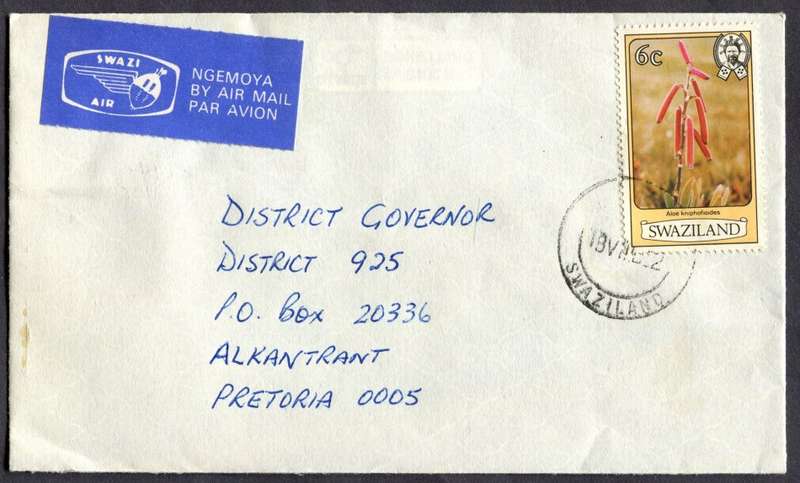 SWAZI
AIR
NGEMOYA
BY AIR MAIL
PAR AVION
6c
Aloe kniphofioides
SWAZILAND
SWAZILAND
DISTRICT GOVERNOR
DISTRICT 925
P.O. Box 20336
ALKANTRANT
PRETORIA 0005